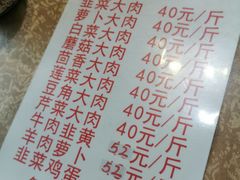 韭菜大肉 40元/斤
萝卜大肉 40元/斤
白菜大肉 40元/斤
蘑菇大肉 40元/斤
茴香大肉 40元/斤
莲菜大肉 40元/斤
豆角大肉 40元/斤
芹菜大肉 40元/斤
牛肉韭黄 元/斤
羊肉萝卜 元/斤
韭菜鸡蛋